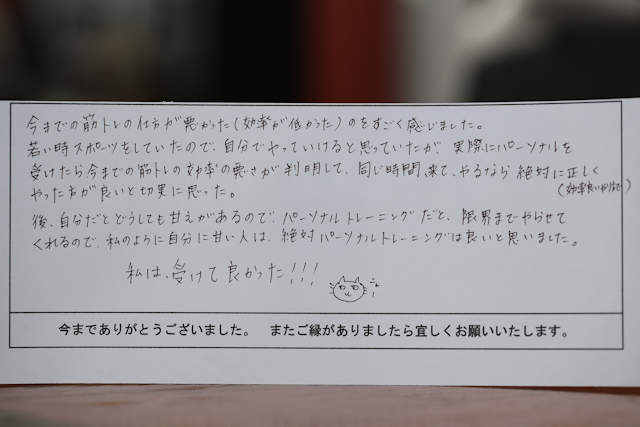 今までの筋トレの仕方が悪かった(効率が低かった)のをすごく感じました。
若い時スポーツをしていたので、自分でやっていけると思っていたが、実際にパーソナルを
受けたら今までの筋トレの効率の悪さが判明して、同じ時間、来て、やるなら絶対に正しく
(効率良いやり方で)
やった方が良いと切実に思った。
後、自分だとどうしても甘えがあるので、パーソナルトレーニングだと、限界までやらせて
くれるので、私のように自分に甘い人は、絶対パーソナルトレーニングは良いと思いました。
私は、受けて良かった!!!
今までありがとうございました。 またご縁がありましたら宜しくお願いいたします。